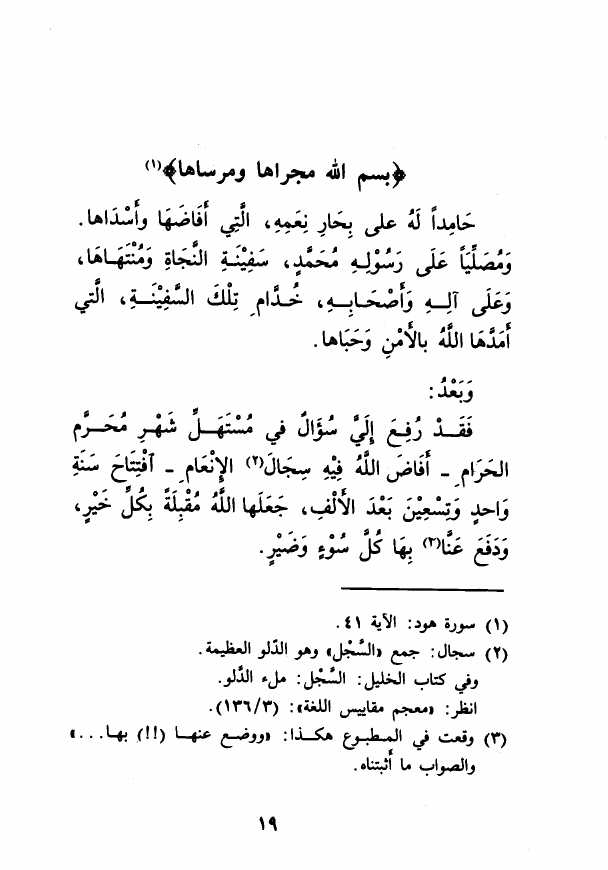 ﴿بسم الله مجراها ومرساها﴾(١)
حَامِداً لَهُ على بِحَارِ نِعَمِهِ، الَّتِي أَفَاضَهَا وأَسْدَاها.
وَمُصَلِّيَاً عَلَى رَسُوْلِهِ مُحَمَّدٍ، سَفِيْنَةِ النَّجَاةِ وَمُنْتَهَاهَا،
وَعَلَى آلِهِ وَأَصْحَابِهِ، خُدَّامِ تِلْكَ السَّفِيْنَةِ، الَّتي
أَمَدَّهَا اللَّهُ بالأَمْنِ وَحَبَاها.
وَبَعْدُ:
فَقَدْ رُفِعَ إِلَيَّ سُؤَالٌ في مُسْتَهَلِّ شَهْرِ مُحَرَّمِ
الحَرَامِ - أَفَاضَ اللَّهُ فِيْهِ سِجَالَ(٢) الإِنْعَامِ - آفْتِتَاحَ سَنَةِ
وَاحدٍ وَتِسْعِيْنَ بَعْدَ الأَلْفِ، جَعَلَها اللَّهُ مُقْبِلَةً بِكُلِّ خَيْرٍ،
وَدَفَعَ عَنَّا(٣) بِهَا كُلَّ سُوْءٍ وَضَيْرٍ.
(١) سورة هود: الآية ٤١.
(٢) سجال: جمع «السَّجْل» وهو الدَّلو العظيمة.
وفي كتاب الخليل: السَّجْل: ملء الدَّلو.
انظر: «معجم مقاييس اللغة»: (١٣٦/٣).
(٣) وقعت في المطبوع هكذا: «ووضع عنها (!!) بها...»
والصواب ما أثبتناه.
١٩